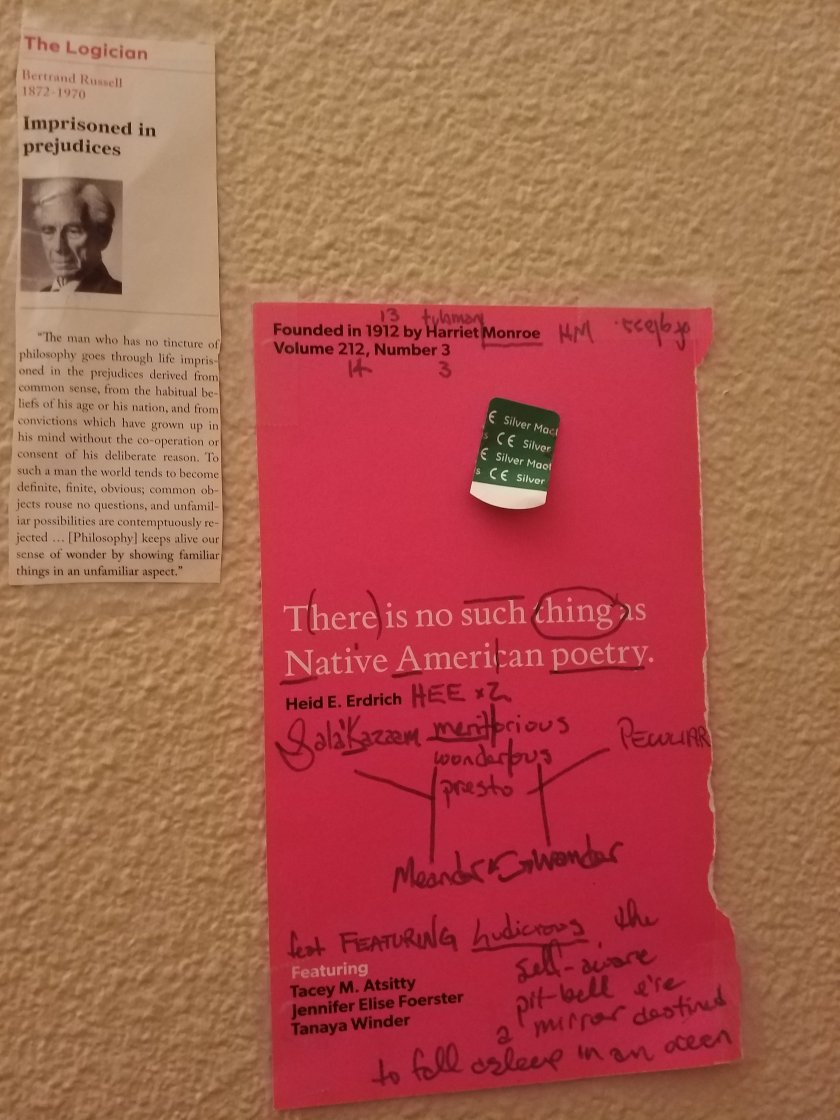 The Logician
Bertrand Russell
1872-1970
Imprisoned in
prejudices
"The man who has no tincture of
philosophy goes through life impris-
oned in the prejudices derived from
common sense, from the habitual be-
liefs of his age or his nation, and from
convictions which have grown up in
his mind without the co-operation or
consent of his deliberate reason. To
such a man the world tends to become
definite, finite, obvious; common ob-
jects rouse no questions, and unfamil-
iar possibilities are contemptuously re-
jected ... [Philosophy] keeps alive our
sense of wonder by showing familiar
things in an unfamiliar aspect."
13
Founded in 1912 by Harriet Monroe HM
Volume 212, Number 3
14 3
CE Silver
CE Silver
CE Silver
CE Silver
There is no such thing as
Native American poetry.
Heid E. Erdrich HEE x2
meritorious
PECULIAR
presto
Meander Wonder
feat FEATURING Ludicrous the
Featuring
self-aware
Tacey M. Atsitty
pit-bell e're
Jennifer Elise Foerster
a mirror destined
Tanaya Winder
to fall asleep in an ocean